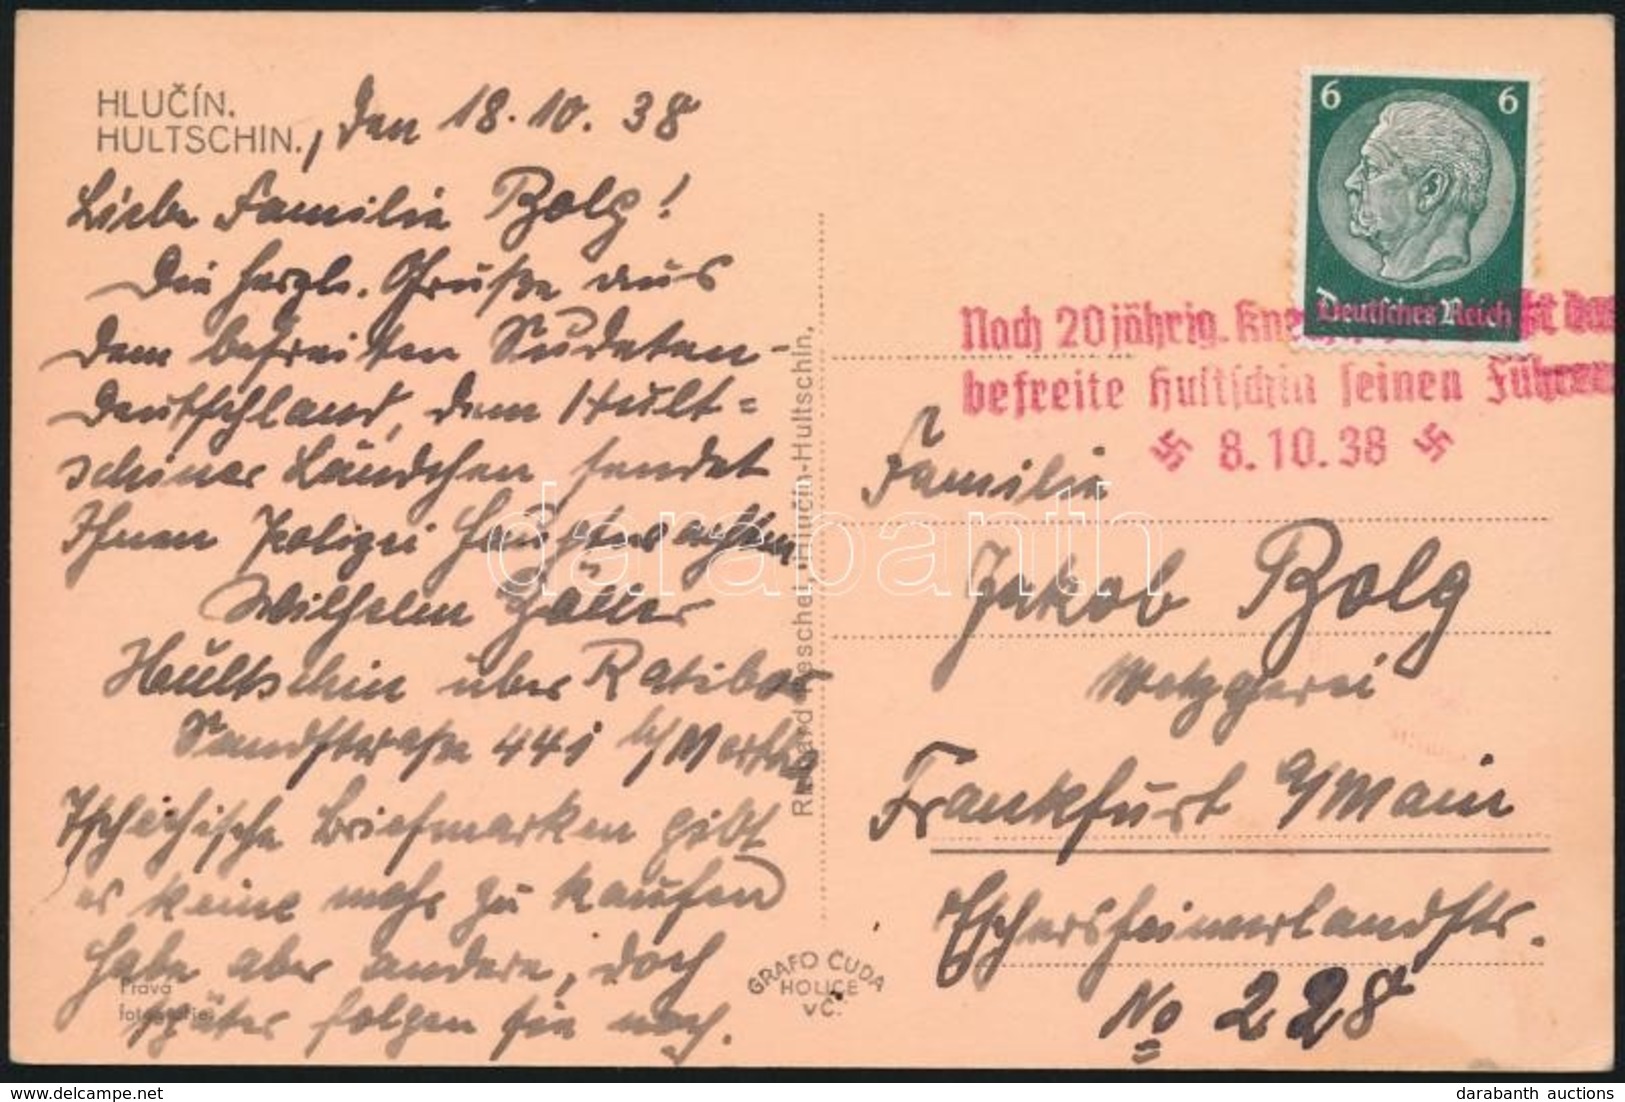 HLUČÍN.
HULTSCHIN., den 18.10.38
Liebe Familie Bolg!
Die herzl. Grüße aus
dem befreiten Sudeten-
deutschland, dem Hult=
schiner Ländchen sendet
Ihnen Polizei Hauptwachtm
Wilhelm
Hultschin über Ratibor
Sandstrasse 441 b/
Tschechische Briefmarken gibt
es keine mehr zu kaufen
habe aber andere, doch
später folgen sie noch.
Pravá
fotografie
GRAFO ČUDA
HOLICE
VČ.
Hlučín-Hultschin,
6 6
Deutsches Reich
Nach 20jährig. ist das
befreite Hultschin seinen Führer
卐 8.10.38 卐
Familie
Jakob Bolg
Metzgerei
Frankfurt a/Main
Eschersheimerlandstr.
No 228
darabanth
darabanth auctions